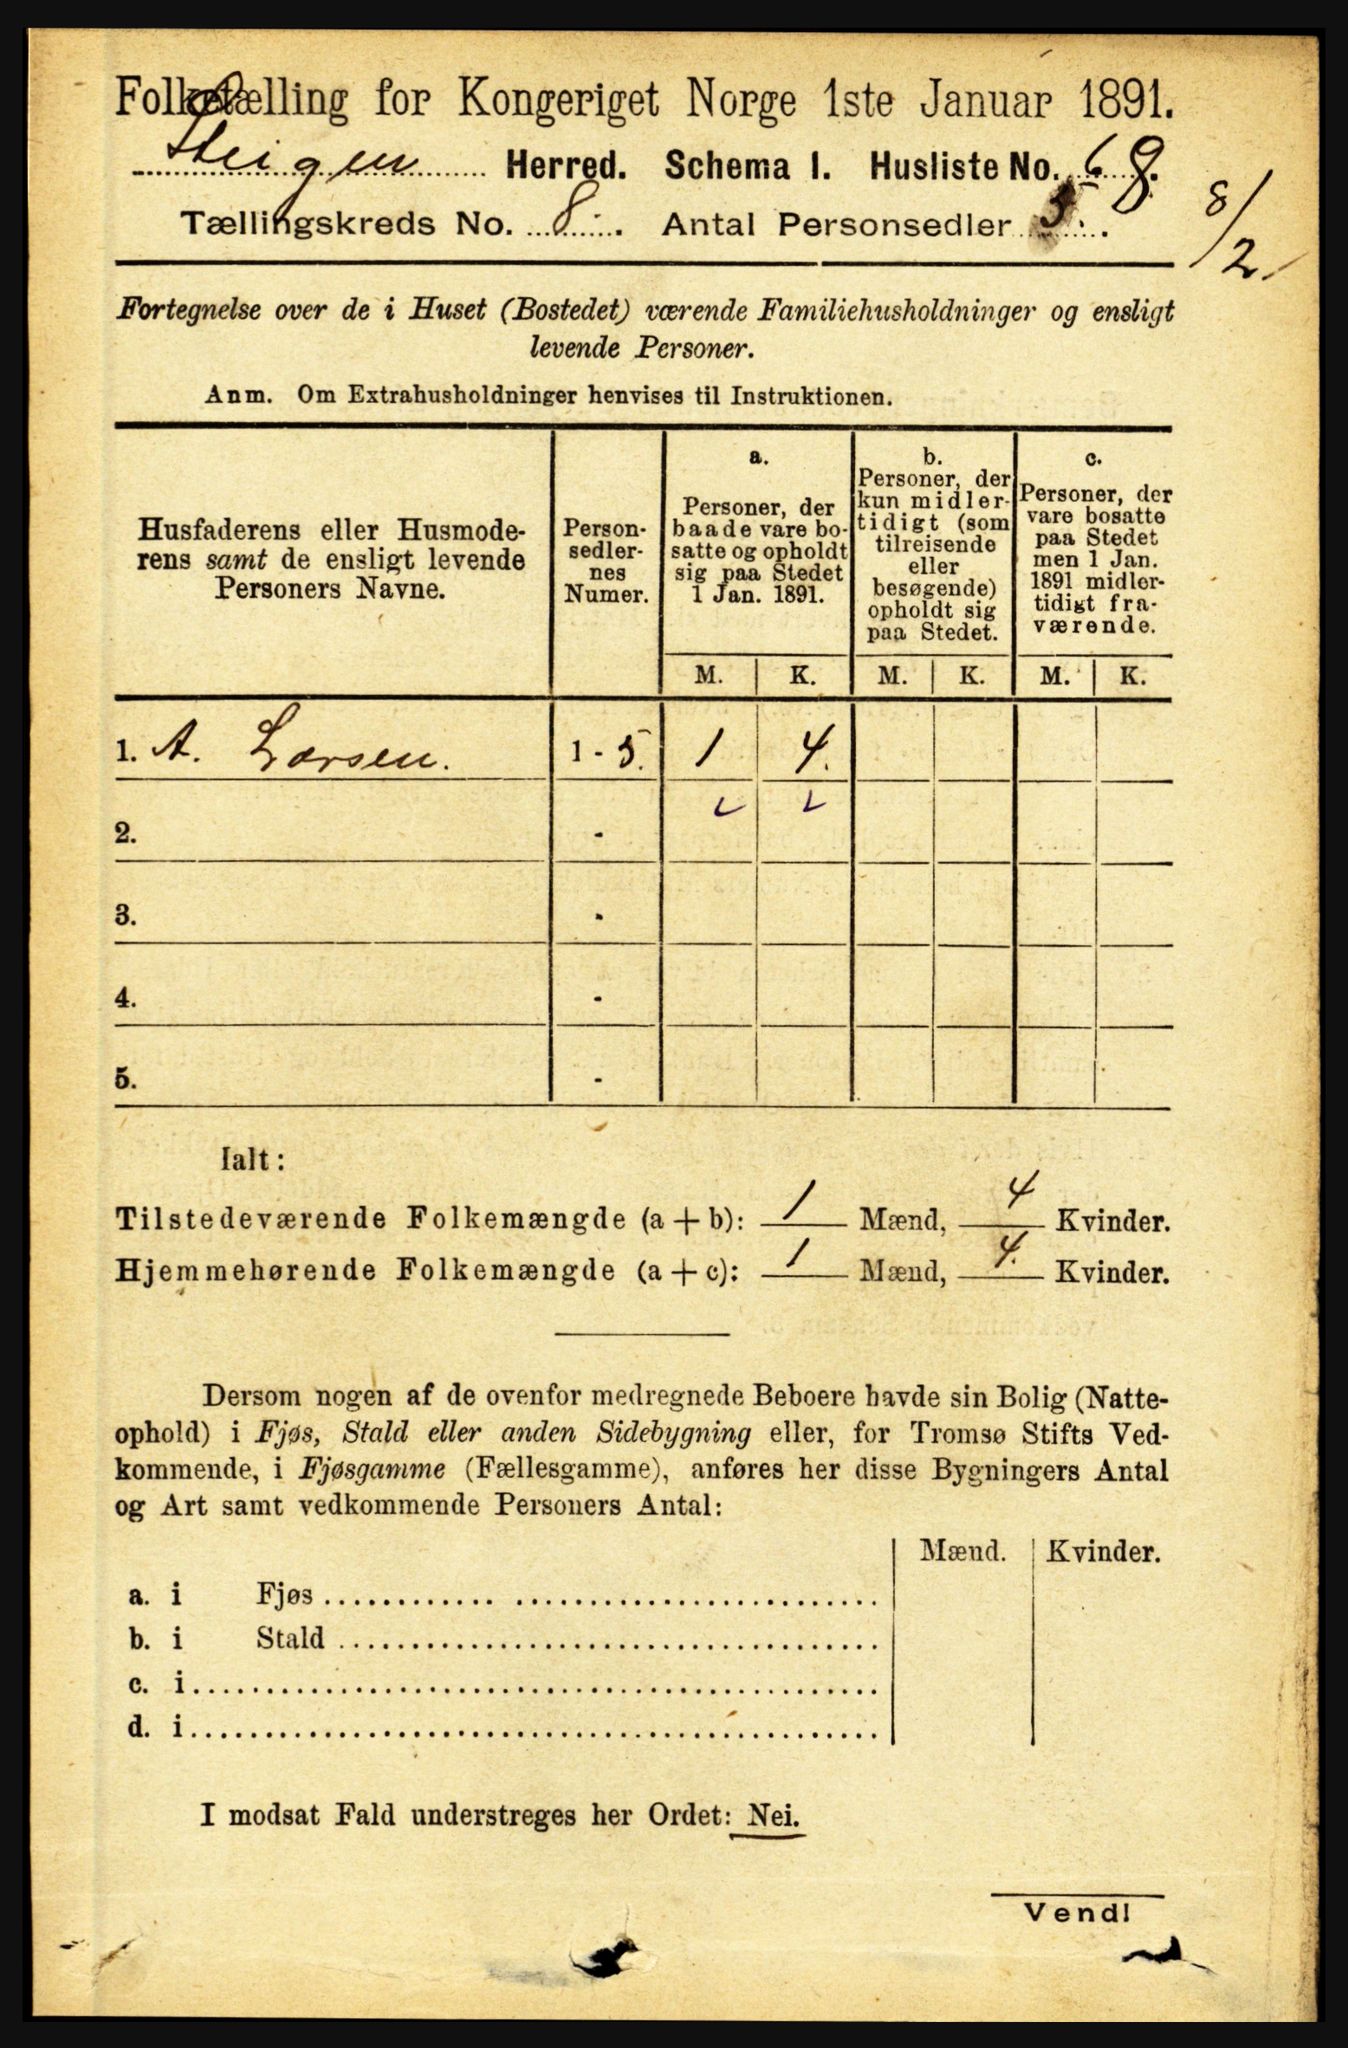 Folketælling for Kongeriget Norge 1ste Januar 1891.
Steigen Herred. Schema I. Husliste No. 68.
Tællingskreds No. 8. Antal Personsedler 5.
8/2.
Fortegnelse over de i Huset (Bostedet) værende Familiehusholdninger og ensligt
levende Personer.
Anm. Om Extrahusholdninger henvises til Instruktionen.
Husfaderens eller Husmode-
rens samt de ensligt levende
Personers Navne.
Person-
sedler-
nes
Numer.
a.
Personer, der
baade vare bo-
satte og opholdt
sig paa Stedet
1 Jan. 1891.
b.
Personer, der
kun midler-
tidigt (som
tilreisende
eller
besøgende)
opholdt sig
paa Stedet.
c.
Personer, der
vare bosatte
paa Stedet
men 1 Jan.
1891 midler-
tidigt fra-
værende.
M. K. M. K. M. K.
1. A. Larsen. 1 - 5. 1 4.
2. -
3. -
4. -
5. -
Ialt:
Tilstedeværende Folkemængde (a + b): 1 Mænd, 4 Kvinder.
Hjemmehørende Folkemængde (a + c): 1 Mænd, 4. Kvinder.
Dersom nogen af de ovenfor medregnede Beboere havde sin Bolig (Natte-
ophold) i Fjøs, Stald eller anden Sidebygning eller, for Tromsø Stifts Ved-
kommende, i Fjøsgamme (Fællesgamme), anføres her disse Bygningers Antal
og Art samt vedkommende Personers Antal:
Mænd. Kvinder.
a. i Fjøs
b. i Stald
c. i
d. i
I modsat Fald understreges her Ordet: Nei.
Vend!